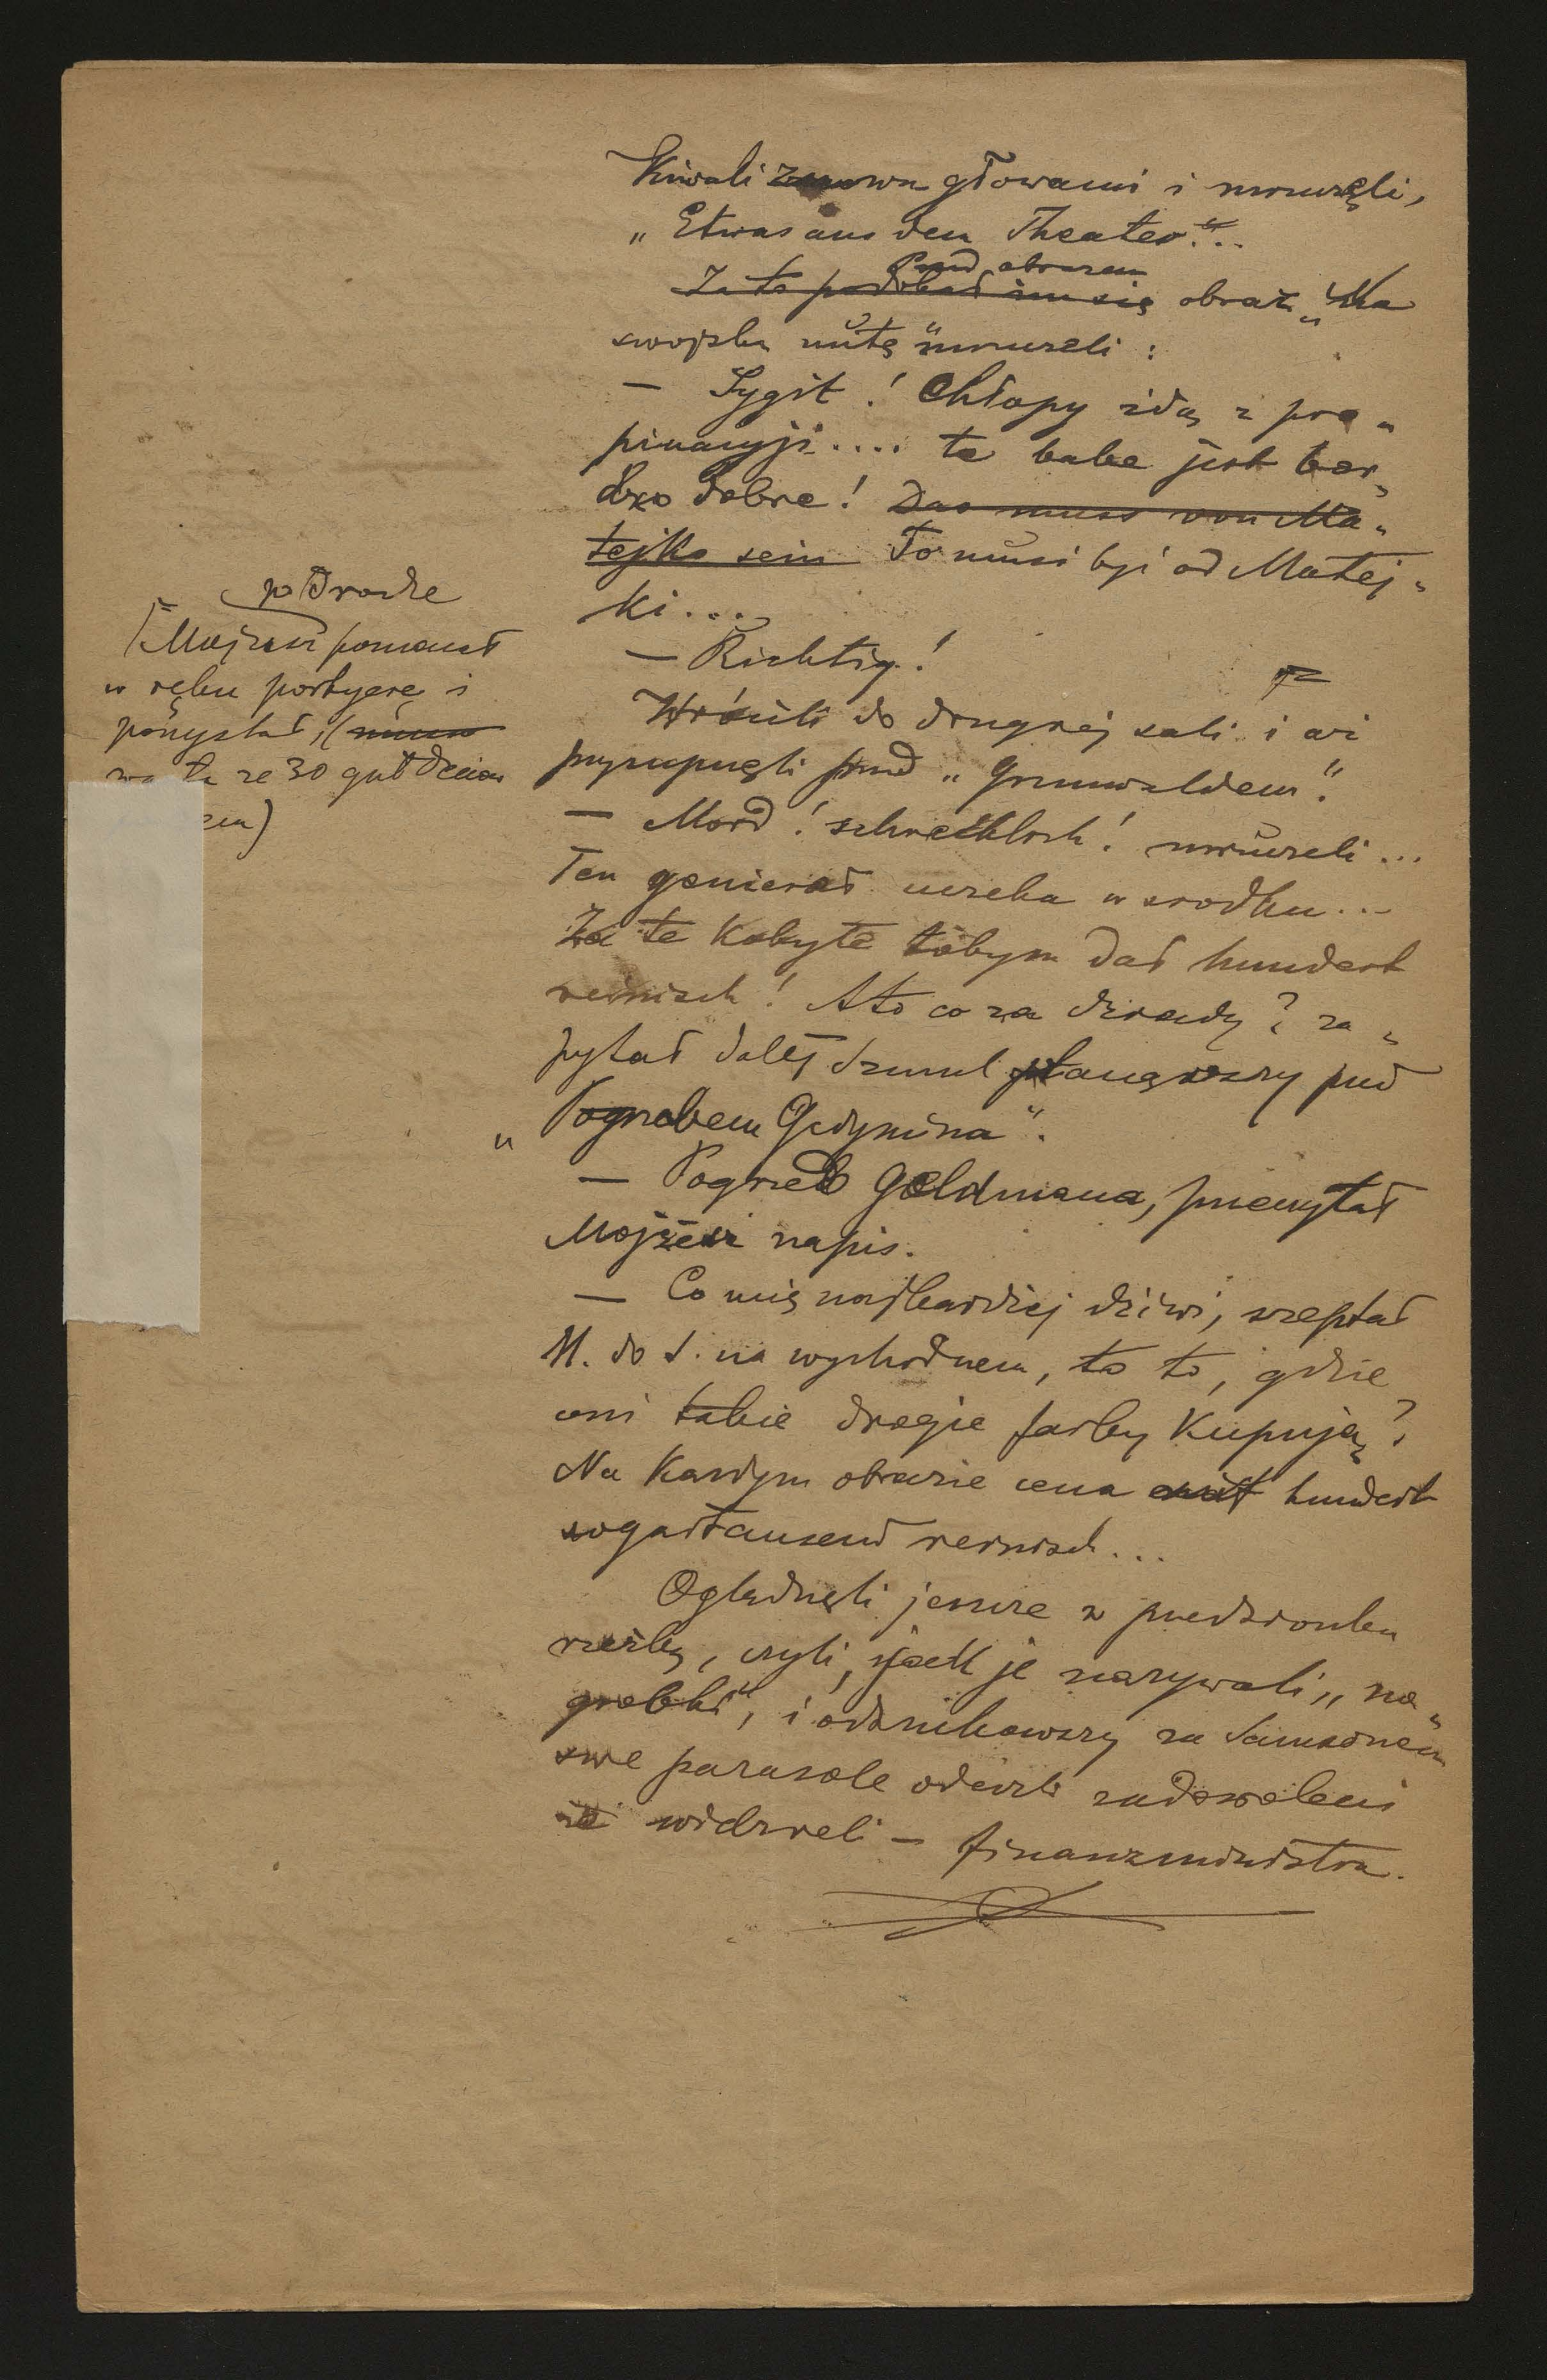 Kiwali znown głowami i mruczęli,
„Etwas aus den Theater"...
Przed obrazem
Za to podobał im się obraz „Na
swojską nutę" mruczeli:
— Sygit! Chłopy idą z pro„
pinacyji.... ta baba jest bar„
dzo dobre! Das muss von Ma„
tejko sein To musi być od Matej„
ki....
— Richtig!
Wrócili do drugiej sali i aż
przycupnęli przed „Grunwaldem".
— Mord! schrecklich! mruczeli...
Ten gienierał ucieka w srodku...
Za te kobyłe tobym dał hundert
reinisch! A to co za dziady? za„
pytał dalej Szmul stanąwszy pod
„Pogrzebem Gedymina".
— Pogrzeb Goldmana, przeczytał
Mojżesz napis.
— Co mię najbardziej dziwi, szeptał
M. do S. na wychodnem, to to, gdzie
oni takie drogie farby kupują?
Na każdym obrazie cena hundert
sogar tausend reinisch...
Oglądnęli jeszcze w przedsionku
rzeźby, czyli, jak je nazywali „na„
grobki", i odszukawszy za Samsonem
swe parasole odeszli zadowoleni
że widzieli — finanzministra.
po drodze
Mojżesz pomacał
w ręku portyerę i
pomyślał, (
warta ze 30 guldenów